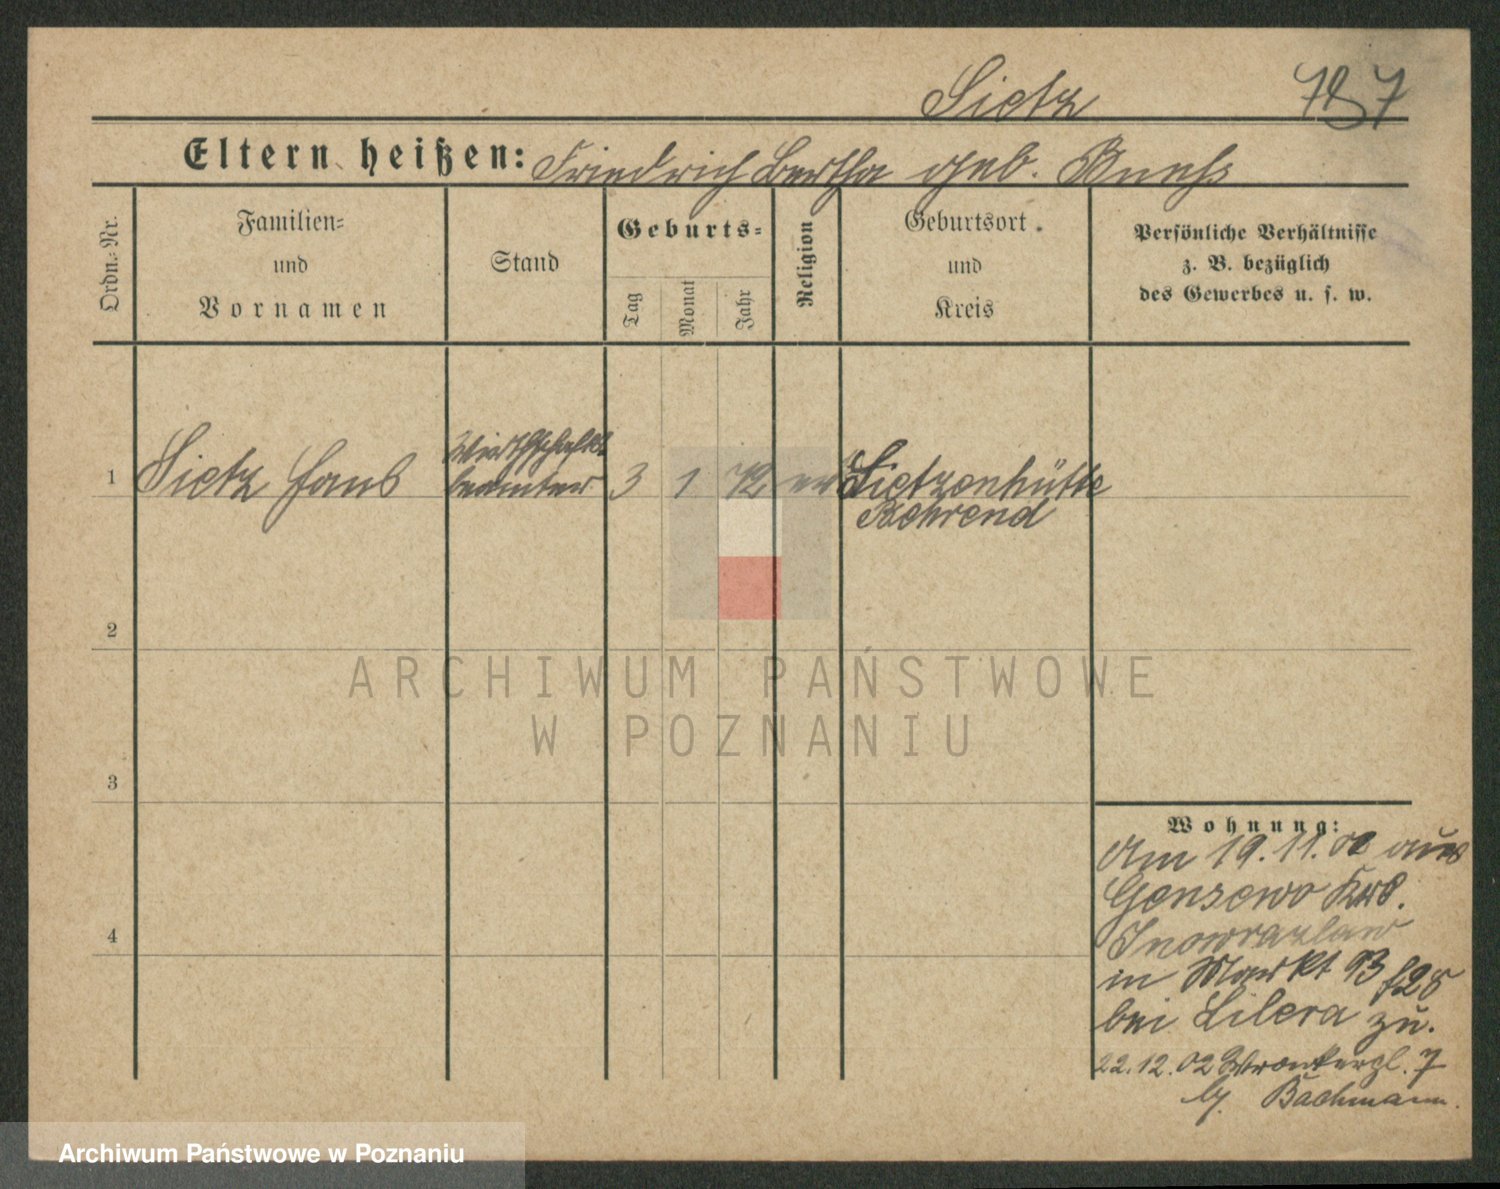 Sietz 787
Eltern heißen: Friedrich Bertha geb.
Ordn.-Nr.
Familien-
und
Vornamen
Stand
Geburts-
Tag
Monat
Jahr
Religion
Geburtsort
und
Kreis
Persönliche Verhältnisse
z. B. bezüglich
des Gewerbes u. s. w.
1 Sietz Hans
Wirthschafts-
beamter
3 1 72 ev
Sietzenhütte
Behrend
2
3
4
Wohnung:
Am 19.11.02 aus
Gonsewo Krs.
Inowrazlaw
in Markt 93
bei Lilera zu.
22.12.02 Wronkerpl. 7
b/. Bachmann.
ARCHIWUM PAŃSTWOWE
W POZNANIU
Archiwum Państwowe w Poznaniu